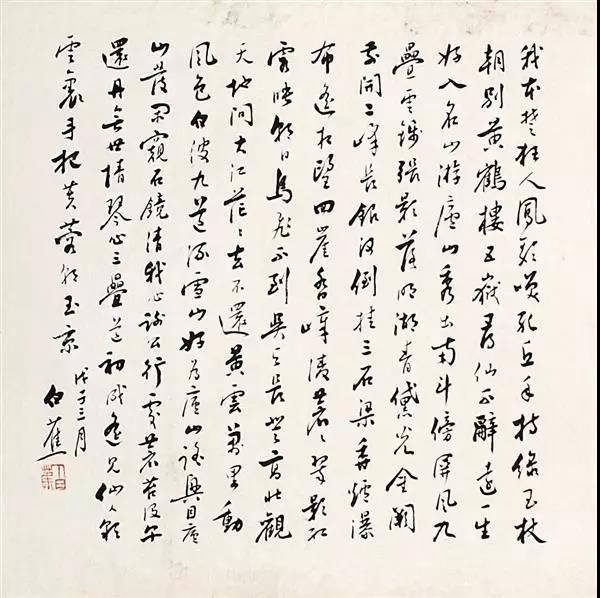 我本楚狂人鳳歌咲孔丘手持綠玉杖
朝別黃鶴樓五嶽尋仙不辭遠一生
好入名山游廬山秀出南斗傍屏風九
疊雲錦張影落明湖青黛光金闕
前開二峰長銀河倒挂三石梁香爐瀑
布遙相望回崖沓嶂凌蒼〻翠影紅
霞映朝日鳥飛不到吳天長登高壯觀
天地間大江茫〻去不還黃雲萬里動
風色白波九道流雪山好為廬山謠興因廬
山發閑窺石鏡清我心謝公行處蒼苔沒早
還丹無世情琴心三疊道初成遙見仙人綵
雲裏手把芙蓉朝玉京
戊子三月
白蕉